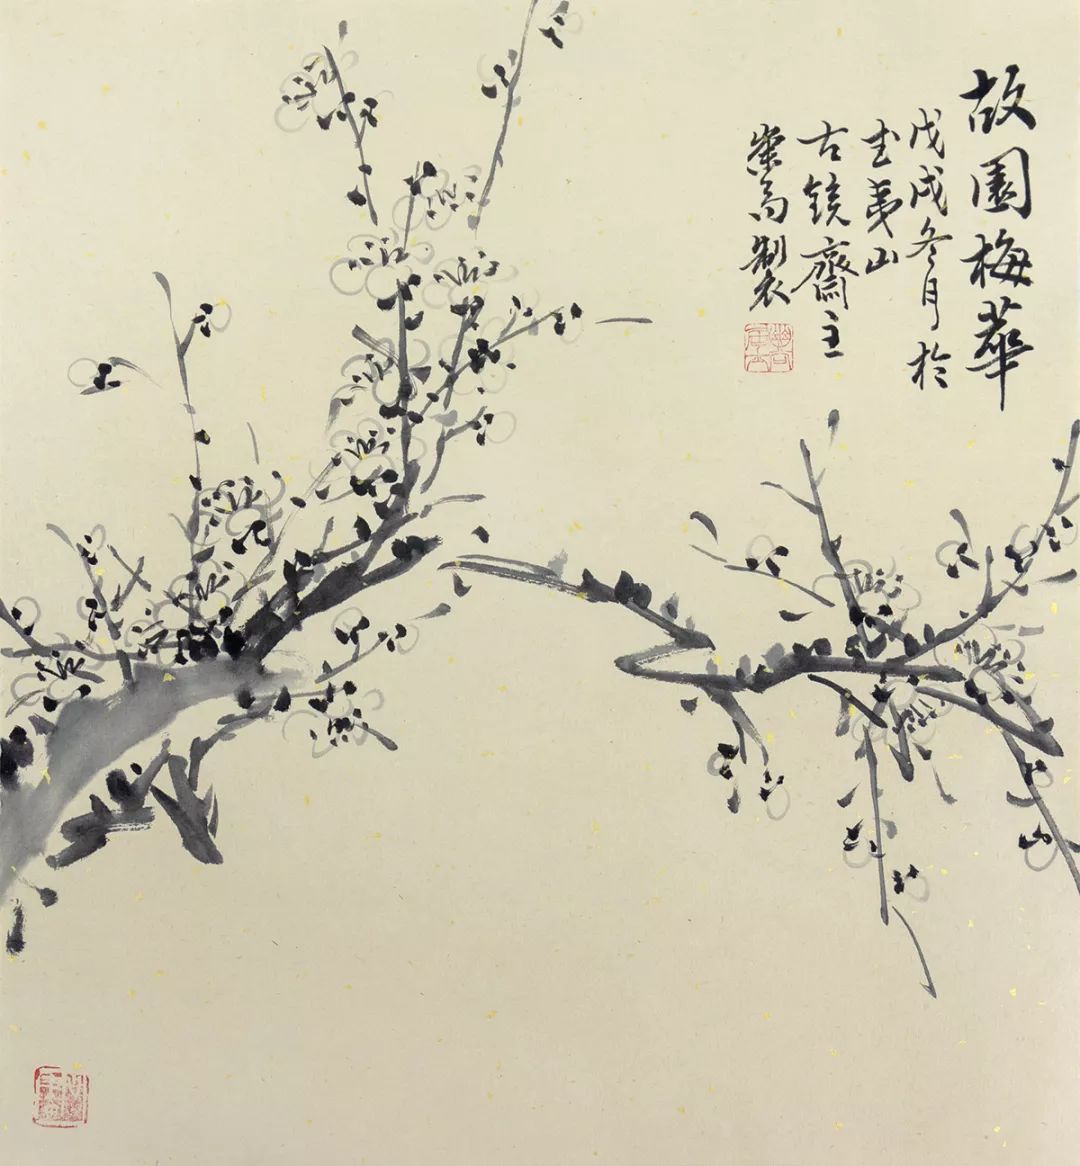 故園梅華
戊戌冬月於
武夷山
古鏡齋主
榮高製